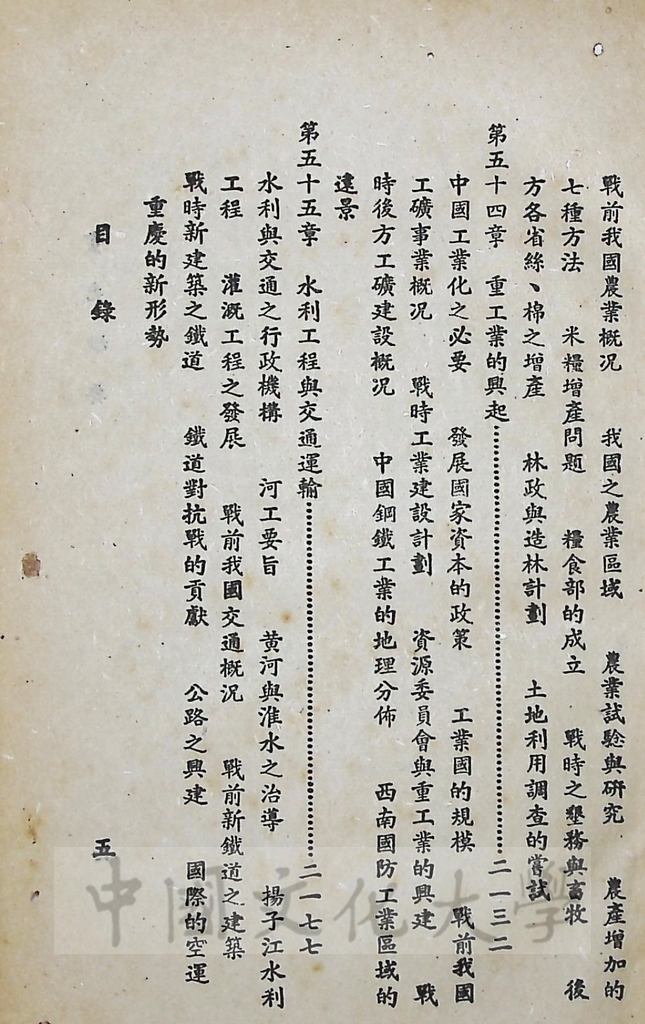 戰前我國農業概況　我國之農業區域　農業試驗與研究　農產增加的
七種方法　米糧增產問題　糧食部的成立　戰時之墾務與畜牧　後
方各省絲、棉之增產　林政與造林計劃　土地利用調查的嘗試
第五十四章　重工業的興起…………………………二一三二
中國工業化之必要　發展國家資本的政策　工業國的規模　戰前我國
工礦事業概況　戰時工業建設計劃　資源委員會與重工業的興建　戰
時後方工礦建設概況　中國鋼鐵工業的地理分佈　西南國防工業區域的
遠景
第五十五章　水利工程與交通運輸…………………………二一七七
水利與交通之行政機構　河工要旨　黃河與淮水之治導　揚子江水利
工程　灌溉工程之發展　戰前我國交通概況　戰前新鐵道之建築
戰時新建築之鐵道　鐵道對抗戰的貢獻　公路之興建　國際的空運
重慶的新形勢
目錄　五
中國文化大學